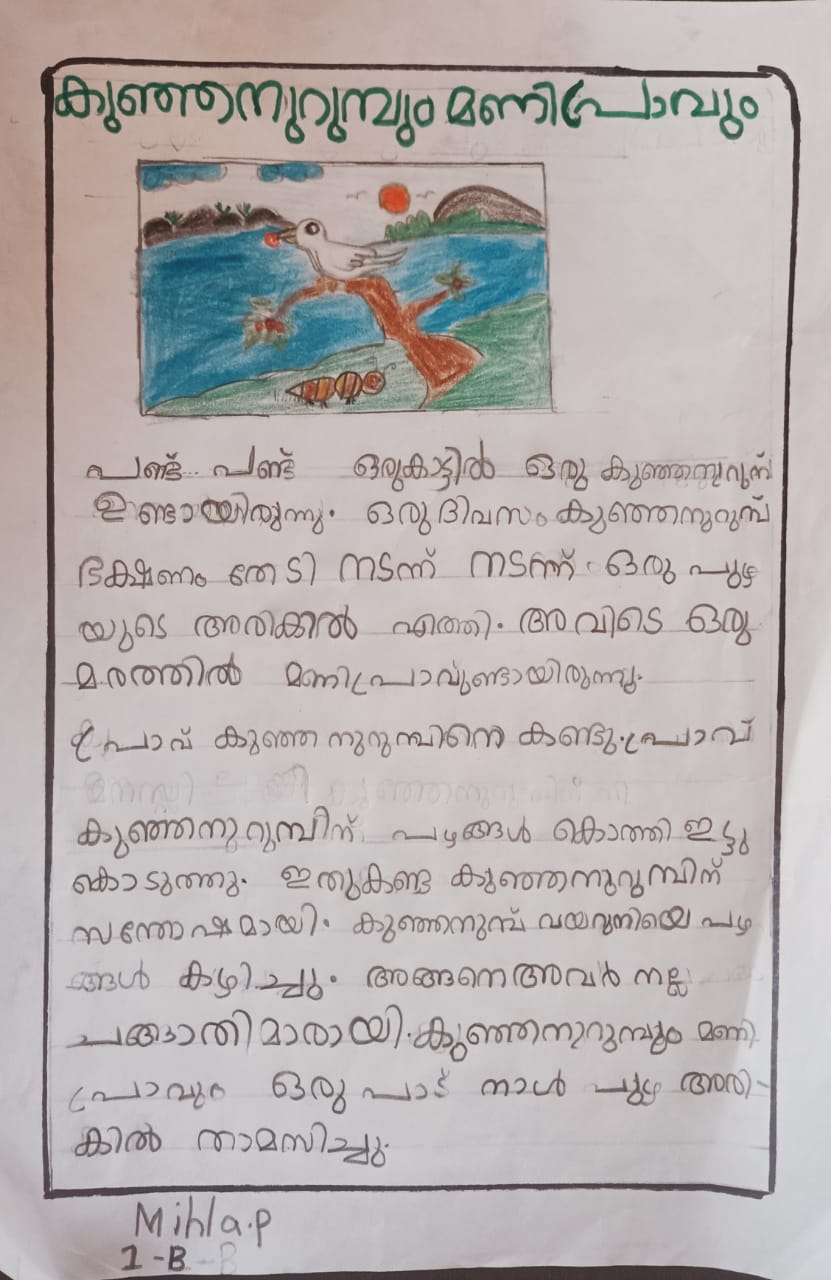 കുഞ്ഞനുറുമ്പും മണിപ്രാവും
പണ്ട് പണ്ട് ഒരുകാട്ടിൽ ഒരു കുഞ്ഞനുറുമ്പ്
ഉണ്ടായിരുന്നു. ഒരു ദിവസം കുഞ്ഞനുറുമ്പ്
ഭക്ഷണം തേടി നടന്ന് നടന്ന് ഒരു പുഴ
യുടെ അരികിൽ എത്തി. അവിടെ ഒരു
മരത്തിൽ മണിപ്രാവുണ്ടായിരുന്നു.
പ്രാവ് കുഞ്ഞനുറുമ്പിനെ കണ്ടു. പ്രാവ്
കുഞ്ഞനുറുമ്പിന് പഴങ്ങൾ കൊത്തി ഇട്ടു
കൊടുത്തു. ഇതുകണ്ട കുഞ്ഞനുറുമ്പിന്
സന്തോഷമായി. കുഞ്ഞനുമ്പ് വയറുനിയെ പഴ
ങ്ങൾ കഴിച്ചു. അങ്ങനെ അവർ നല്ല
ചങ്ങാതിമാരായി. കുഞ്ഞനുറുമ്പും മണി
പ്രാവും ഒരുപാട് നാൾ പുഴ അരി-
കിൽ താമസിച്ചു.
Mihla.p
1-B